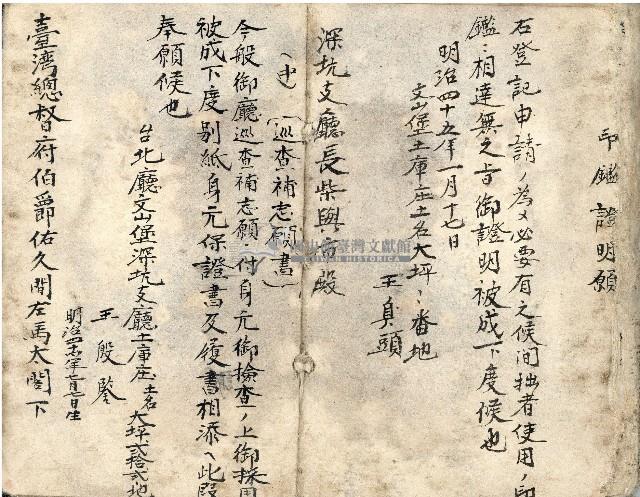 印鑑證明願
右登記申請ノ為メ必要有之候間拙者使用ノ印
鑑ニ相違無之旨御證明被成下度候也
明治四十五年一月十七日
文山堡土庫庄土名大坪、番地
王臭頭
深坑支廳長柴與 殿
(巡查補志願書)
今般御廳巡查補志願ニ付身元御檢查ノ上御採用
被成下度別紙身元保證書及履書相添ヘ此段
奉願候也
台北廳文山堡深坑支廳土庫庄土名大坪貳拾貳地
王殷鑒
明治 年七月七日生
臺灣總督府伯爵佑久間左馬太閣下